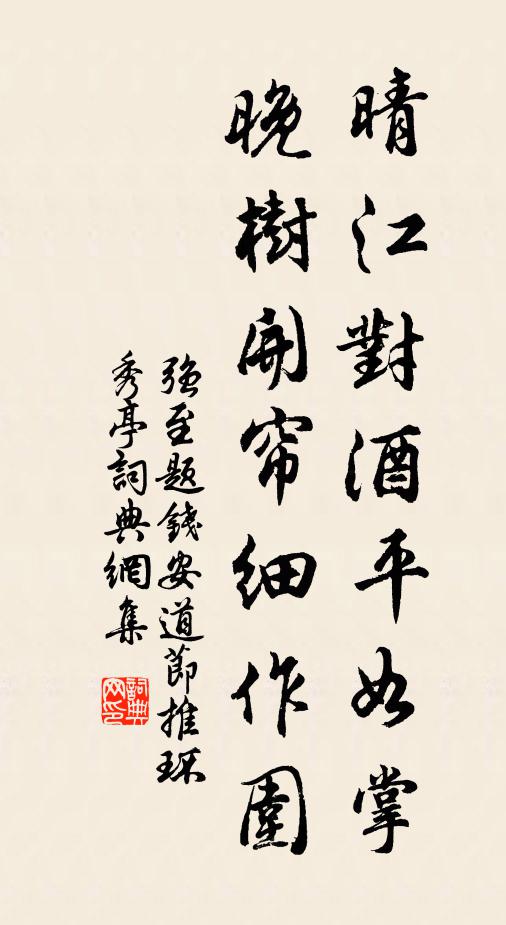 晴江對酒平如掌
晚樹開帘細作圍
强至題錢安道節推環
秀亭詞典網集
詞典
网印